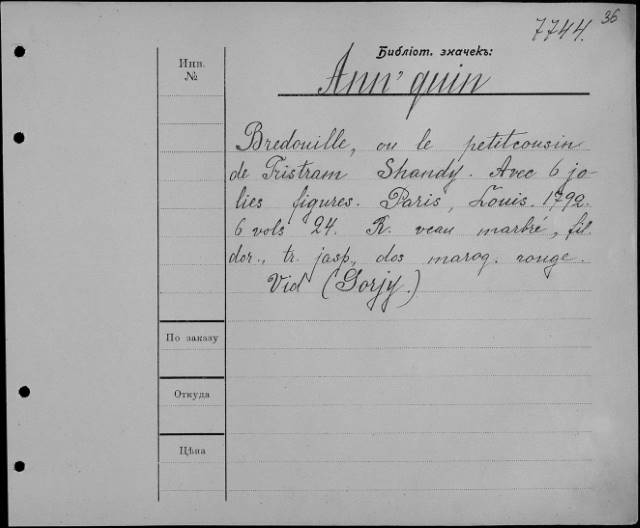 36
7744.
Библіот. значекъ:
Инв.
№
Ann' quin
Bredouille, ou le petit cousin
de Tristram Shandy. Avec 6 jo-
lies figures. Paris, Louis. 1792.
6 vols 24. R. veau marbré, fil.
dor., tr. jasp., dos maroq. rouge.
Vid (Gorjy.)
По заказу
Откуда
Цѣна